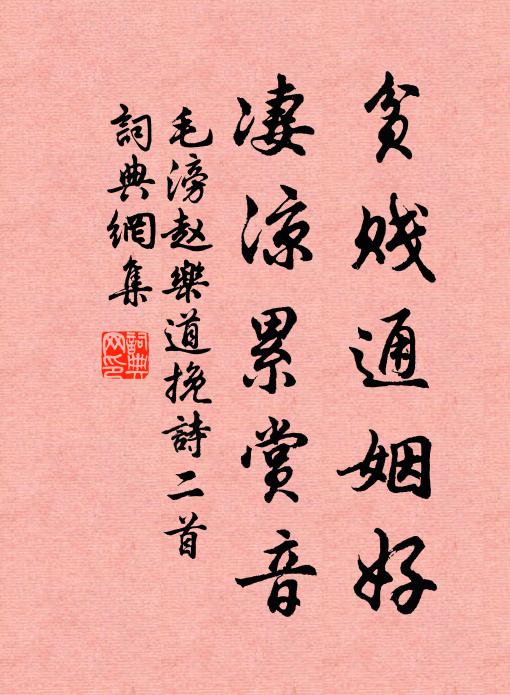 貧贱通姻好
凄凉累赏音
毛滂赵樂道挽詩二首
詞典網集
詞典网印